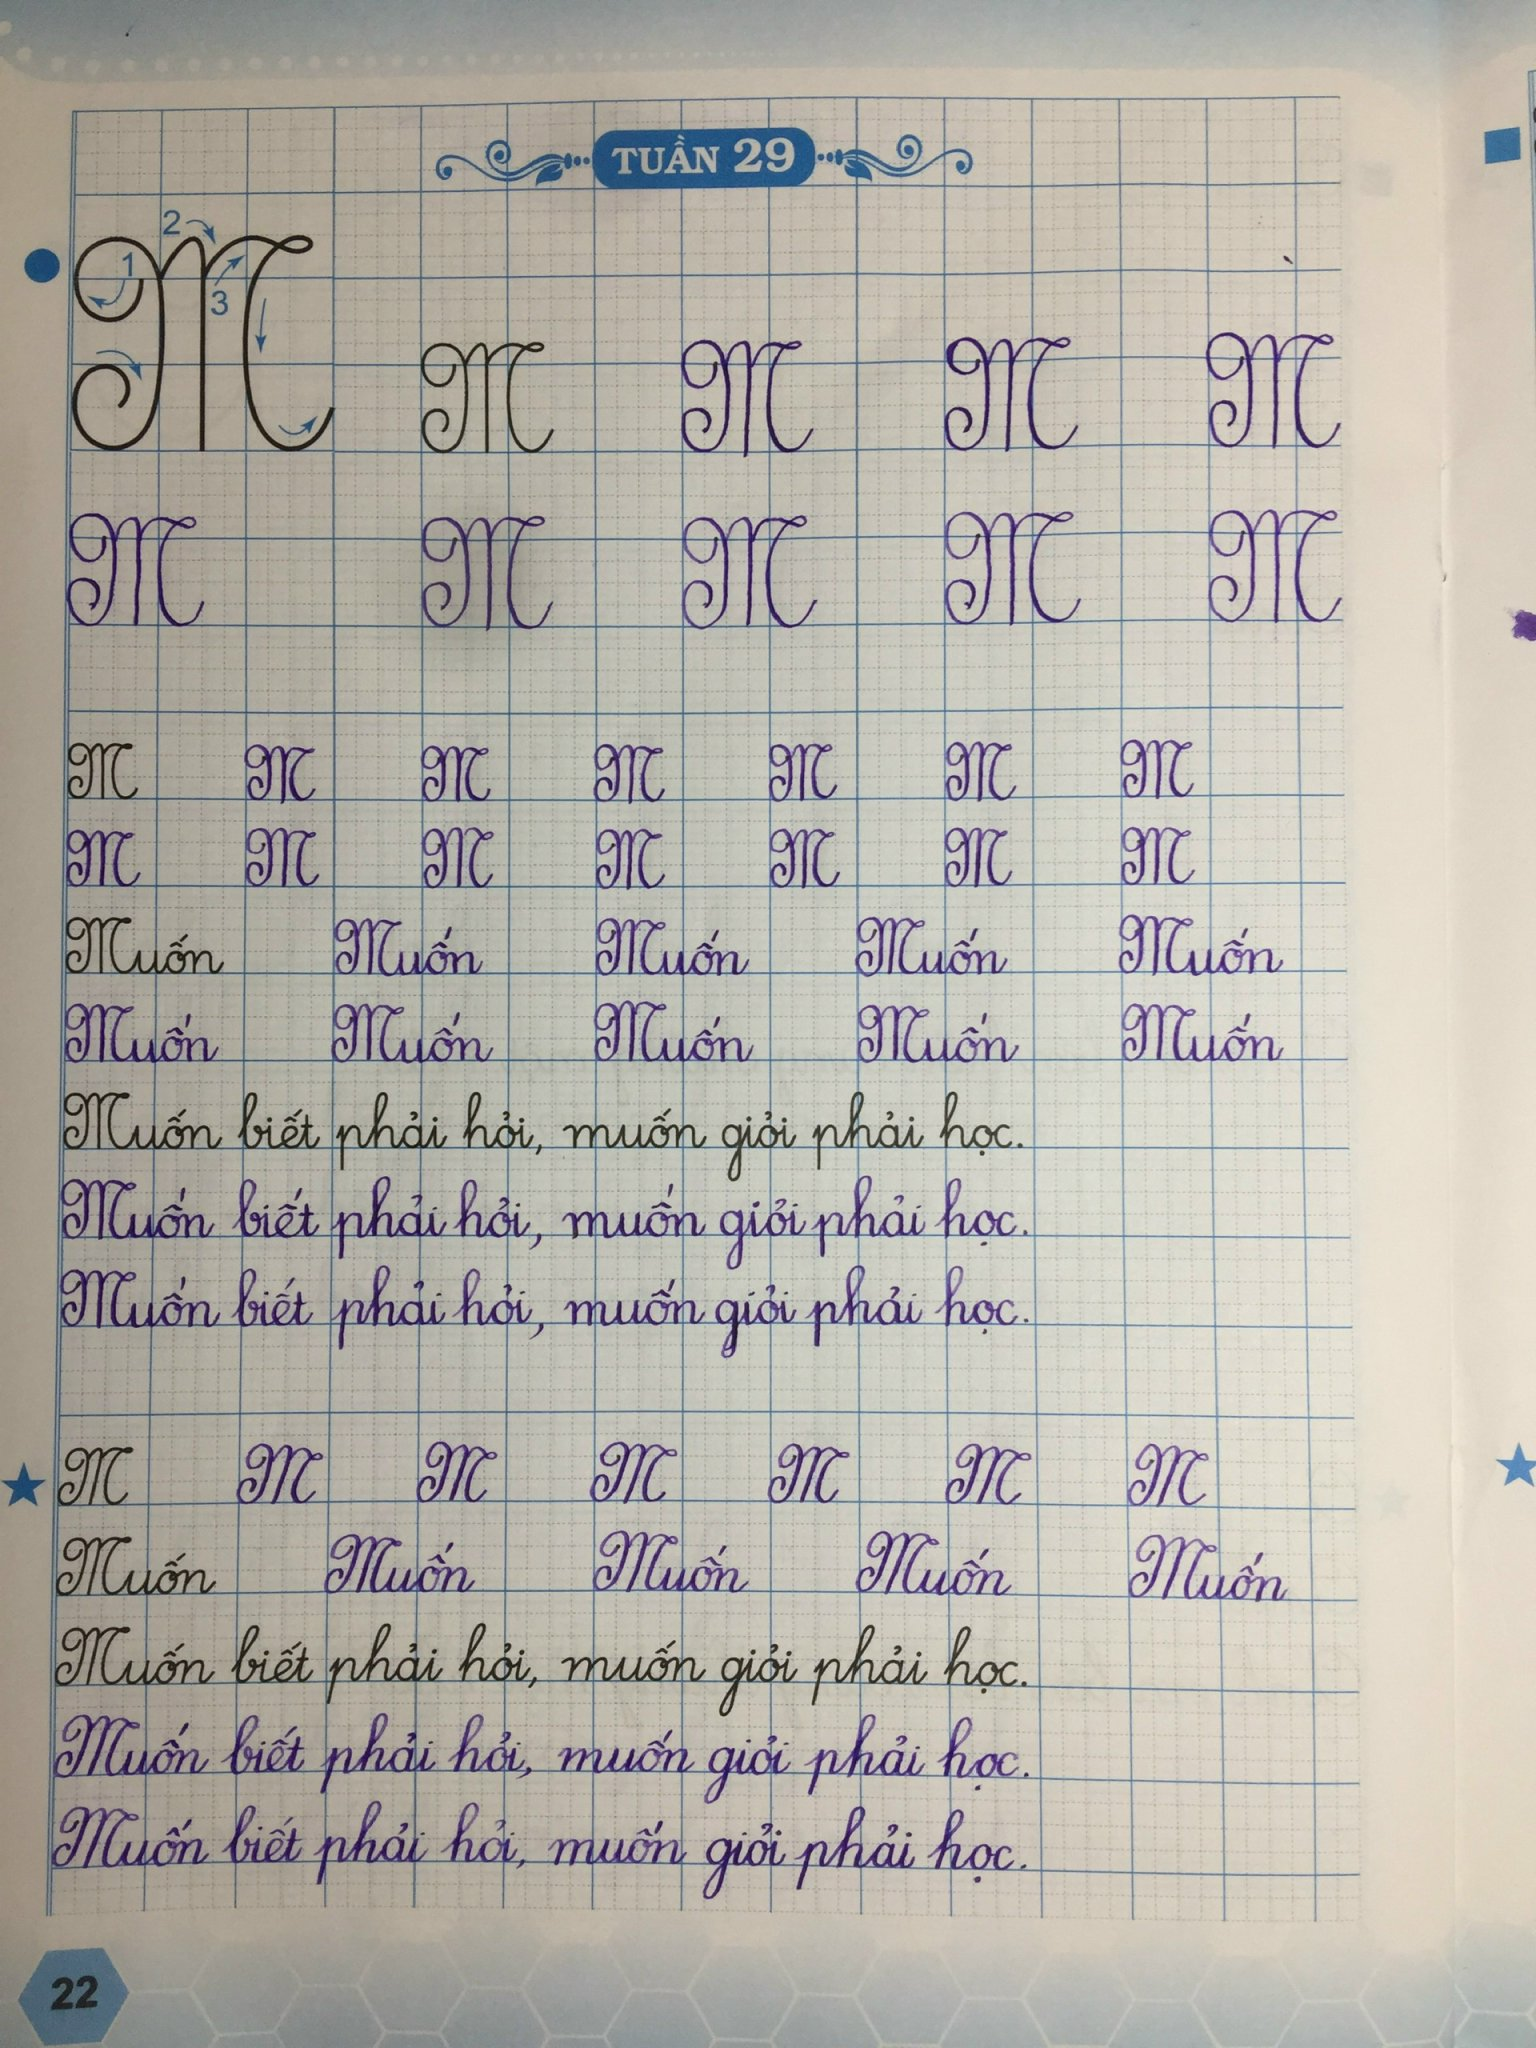 TUẦN 29
2
1
3
M
M M M M
M M M M M
M M M M M M M
M M M M M M M
Muốn Muốn Muốn Muốn Muốn
Muốn Muốn Muốn Muốn Muốn
Muốn biết phải hỏi, muốn giỏi phải học.
Muốn biết phải hỏi, muốn giỏi phải học.
Muốn biết phải hỏi, muốn giỏi phải học.
M M M M M M M
Muốn Muốn Muốn Muốn Muốn
Muốn biết phải hỏi, muốn giỏi phải học.
Muốn biết phải hỏi, muốn giỏi phải học.
Muốn biết phải hỏi, muốn giỏi phải học.
22